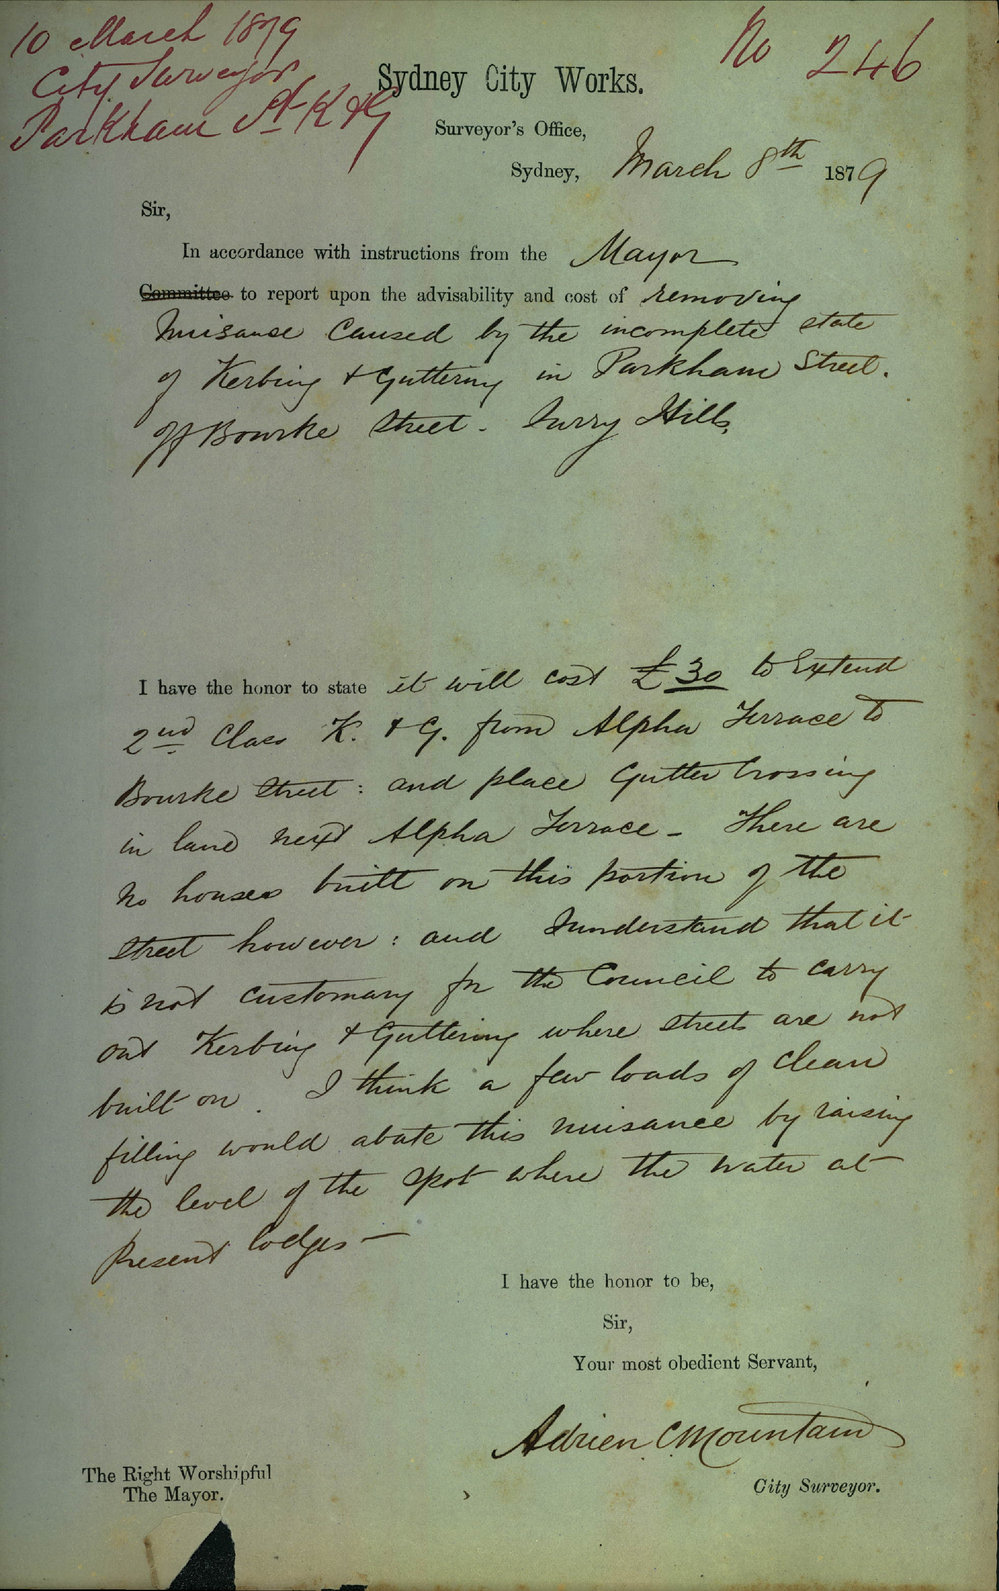 10 March 1879
City Surveyor
Parkham St K & G
No 246
Sydney City Works.
Surveyor's Office,
Sydney, March 8th 1879
Sir,
In accordance with instructions from the Mayor
Committee to report upon the advisability and cost of removing
nuisance caused by the incomplete state
of Kerbing & Guttering in Parkham Street.
off Bourke Street - Surry Hills.
I have the honor to state it will cost £30 to Extend
2nd Class K. & G. from Alpha Terrace to
Bourke Street: and place Gutter Crossing
in land next Alpha Terrace - There are
no houses built on this portion of the
Street however: and I understand that it
is not customary for the Council to carry
out Kerbing & Guttering where streets are not
built on. I think a few loads of clean
filling would abate this nuisance by raising
the level of the spot where the water at
Present lodges -
I have the honor to be,
Sir,
Your most obedient Servant,
Adrien C Mountain
City Surveyor.
The Right Worshipful
The Mayor.